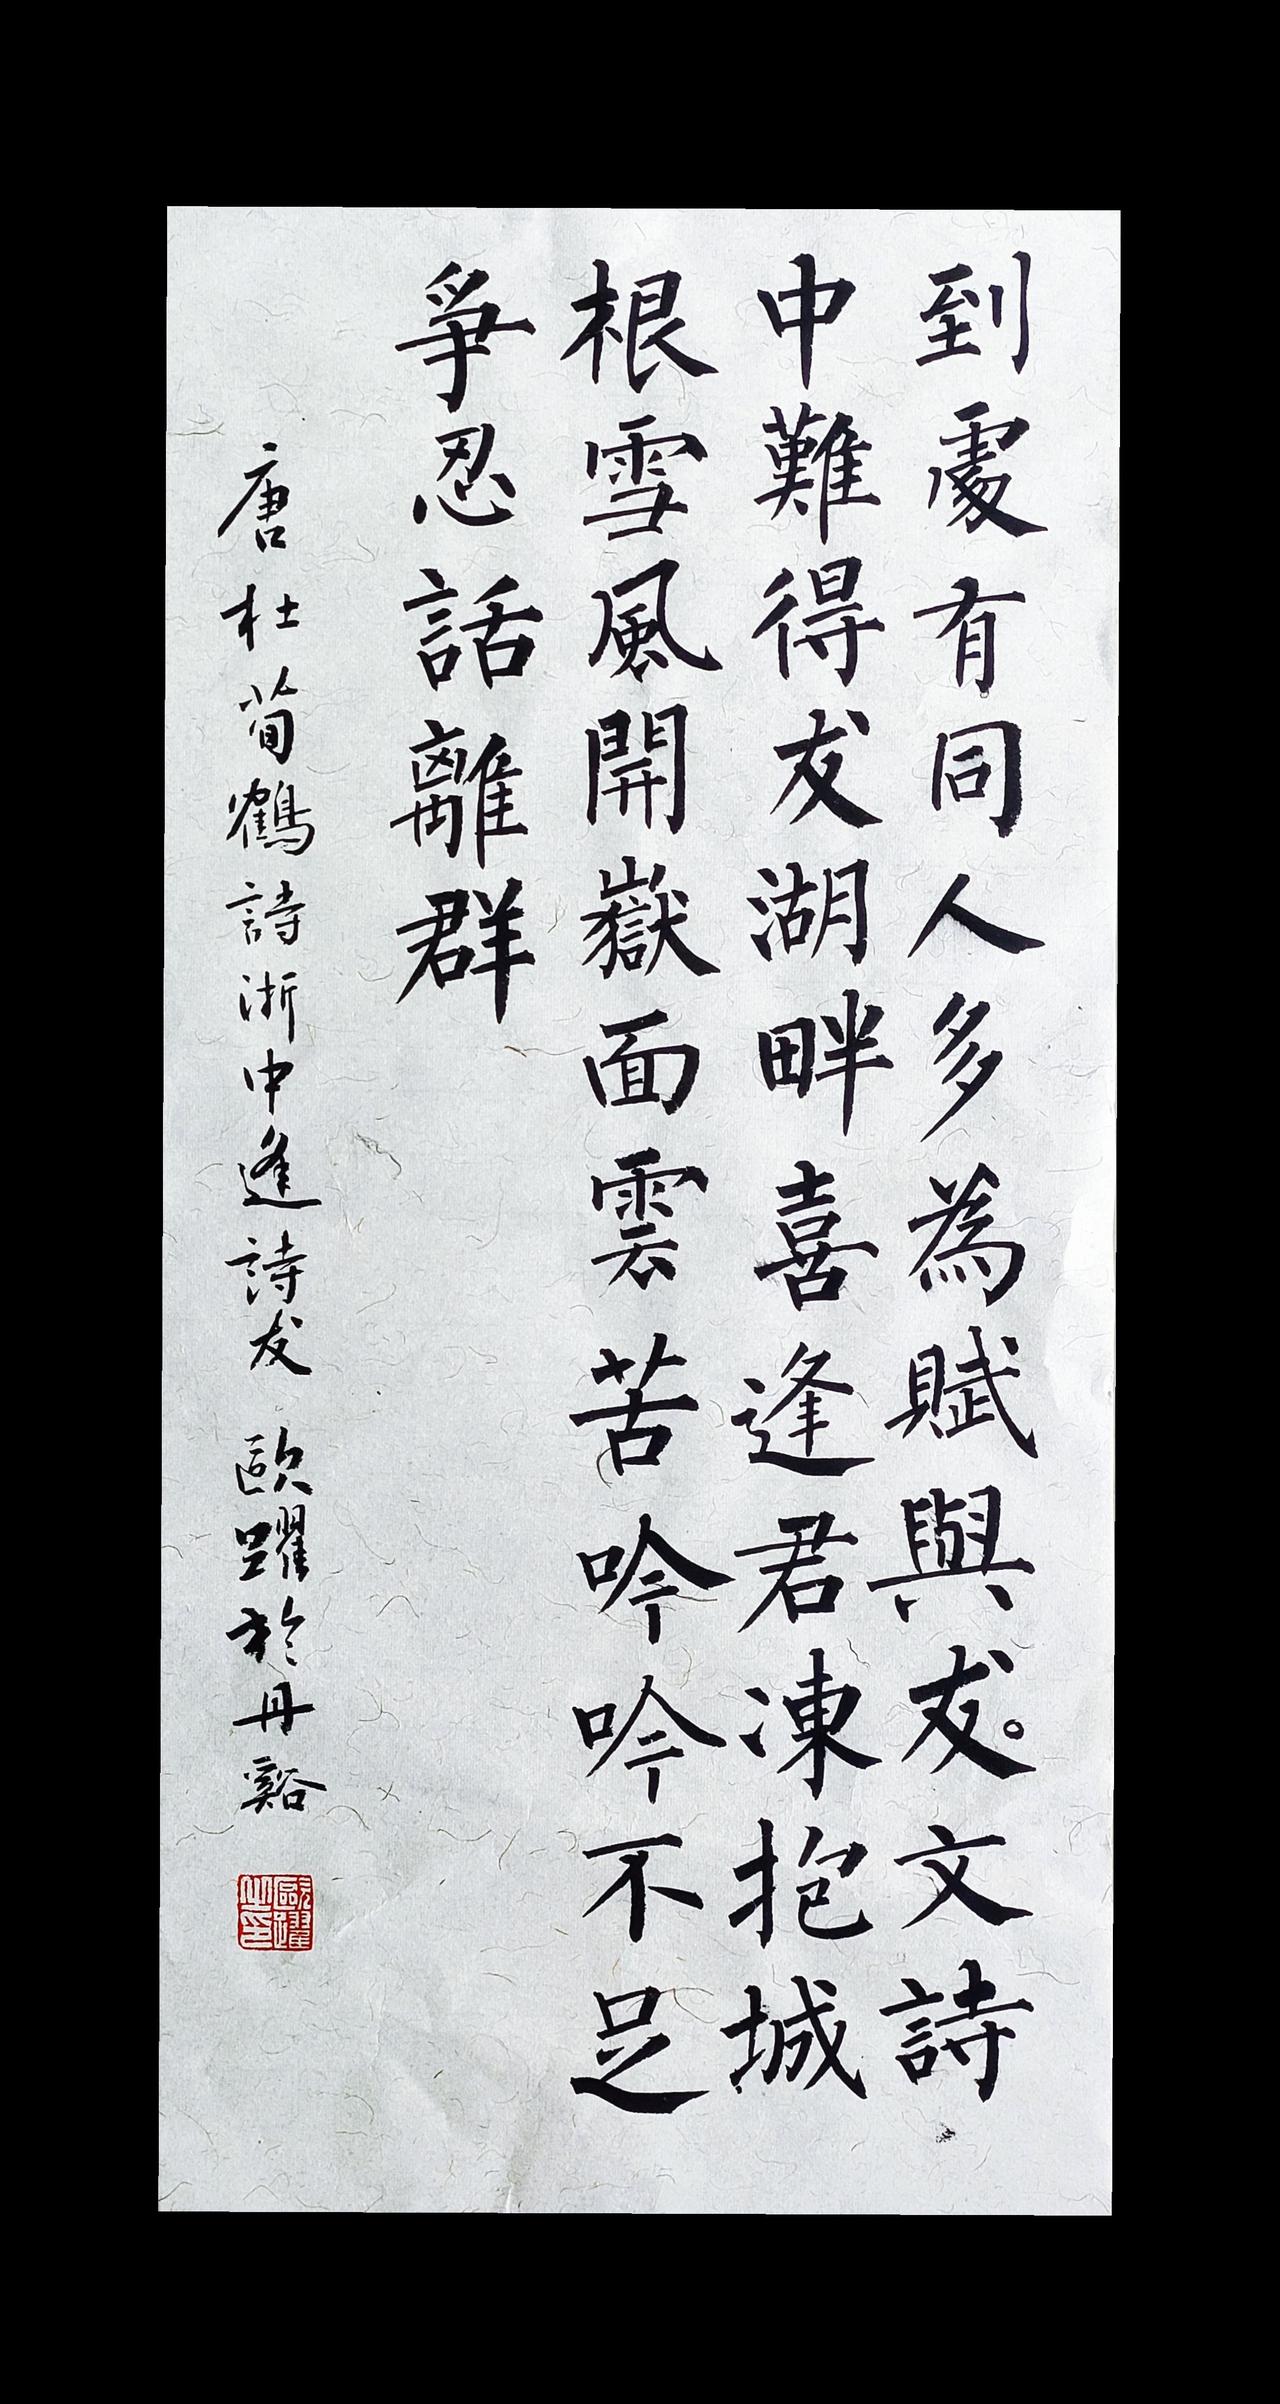 到處有同人多為賦與友。文詩
中難得友湖畔喜逢君凍抱城
根雪風開嶽面雲苦吟吟不足
爭忍話離群
唐杜荀鶴詩浙中逢詩友 歐躍於丹谿
歐躍之印